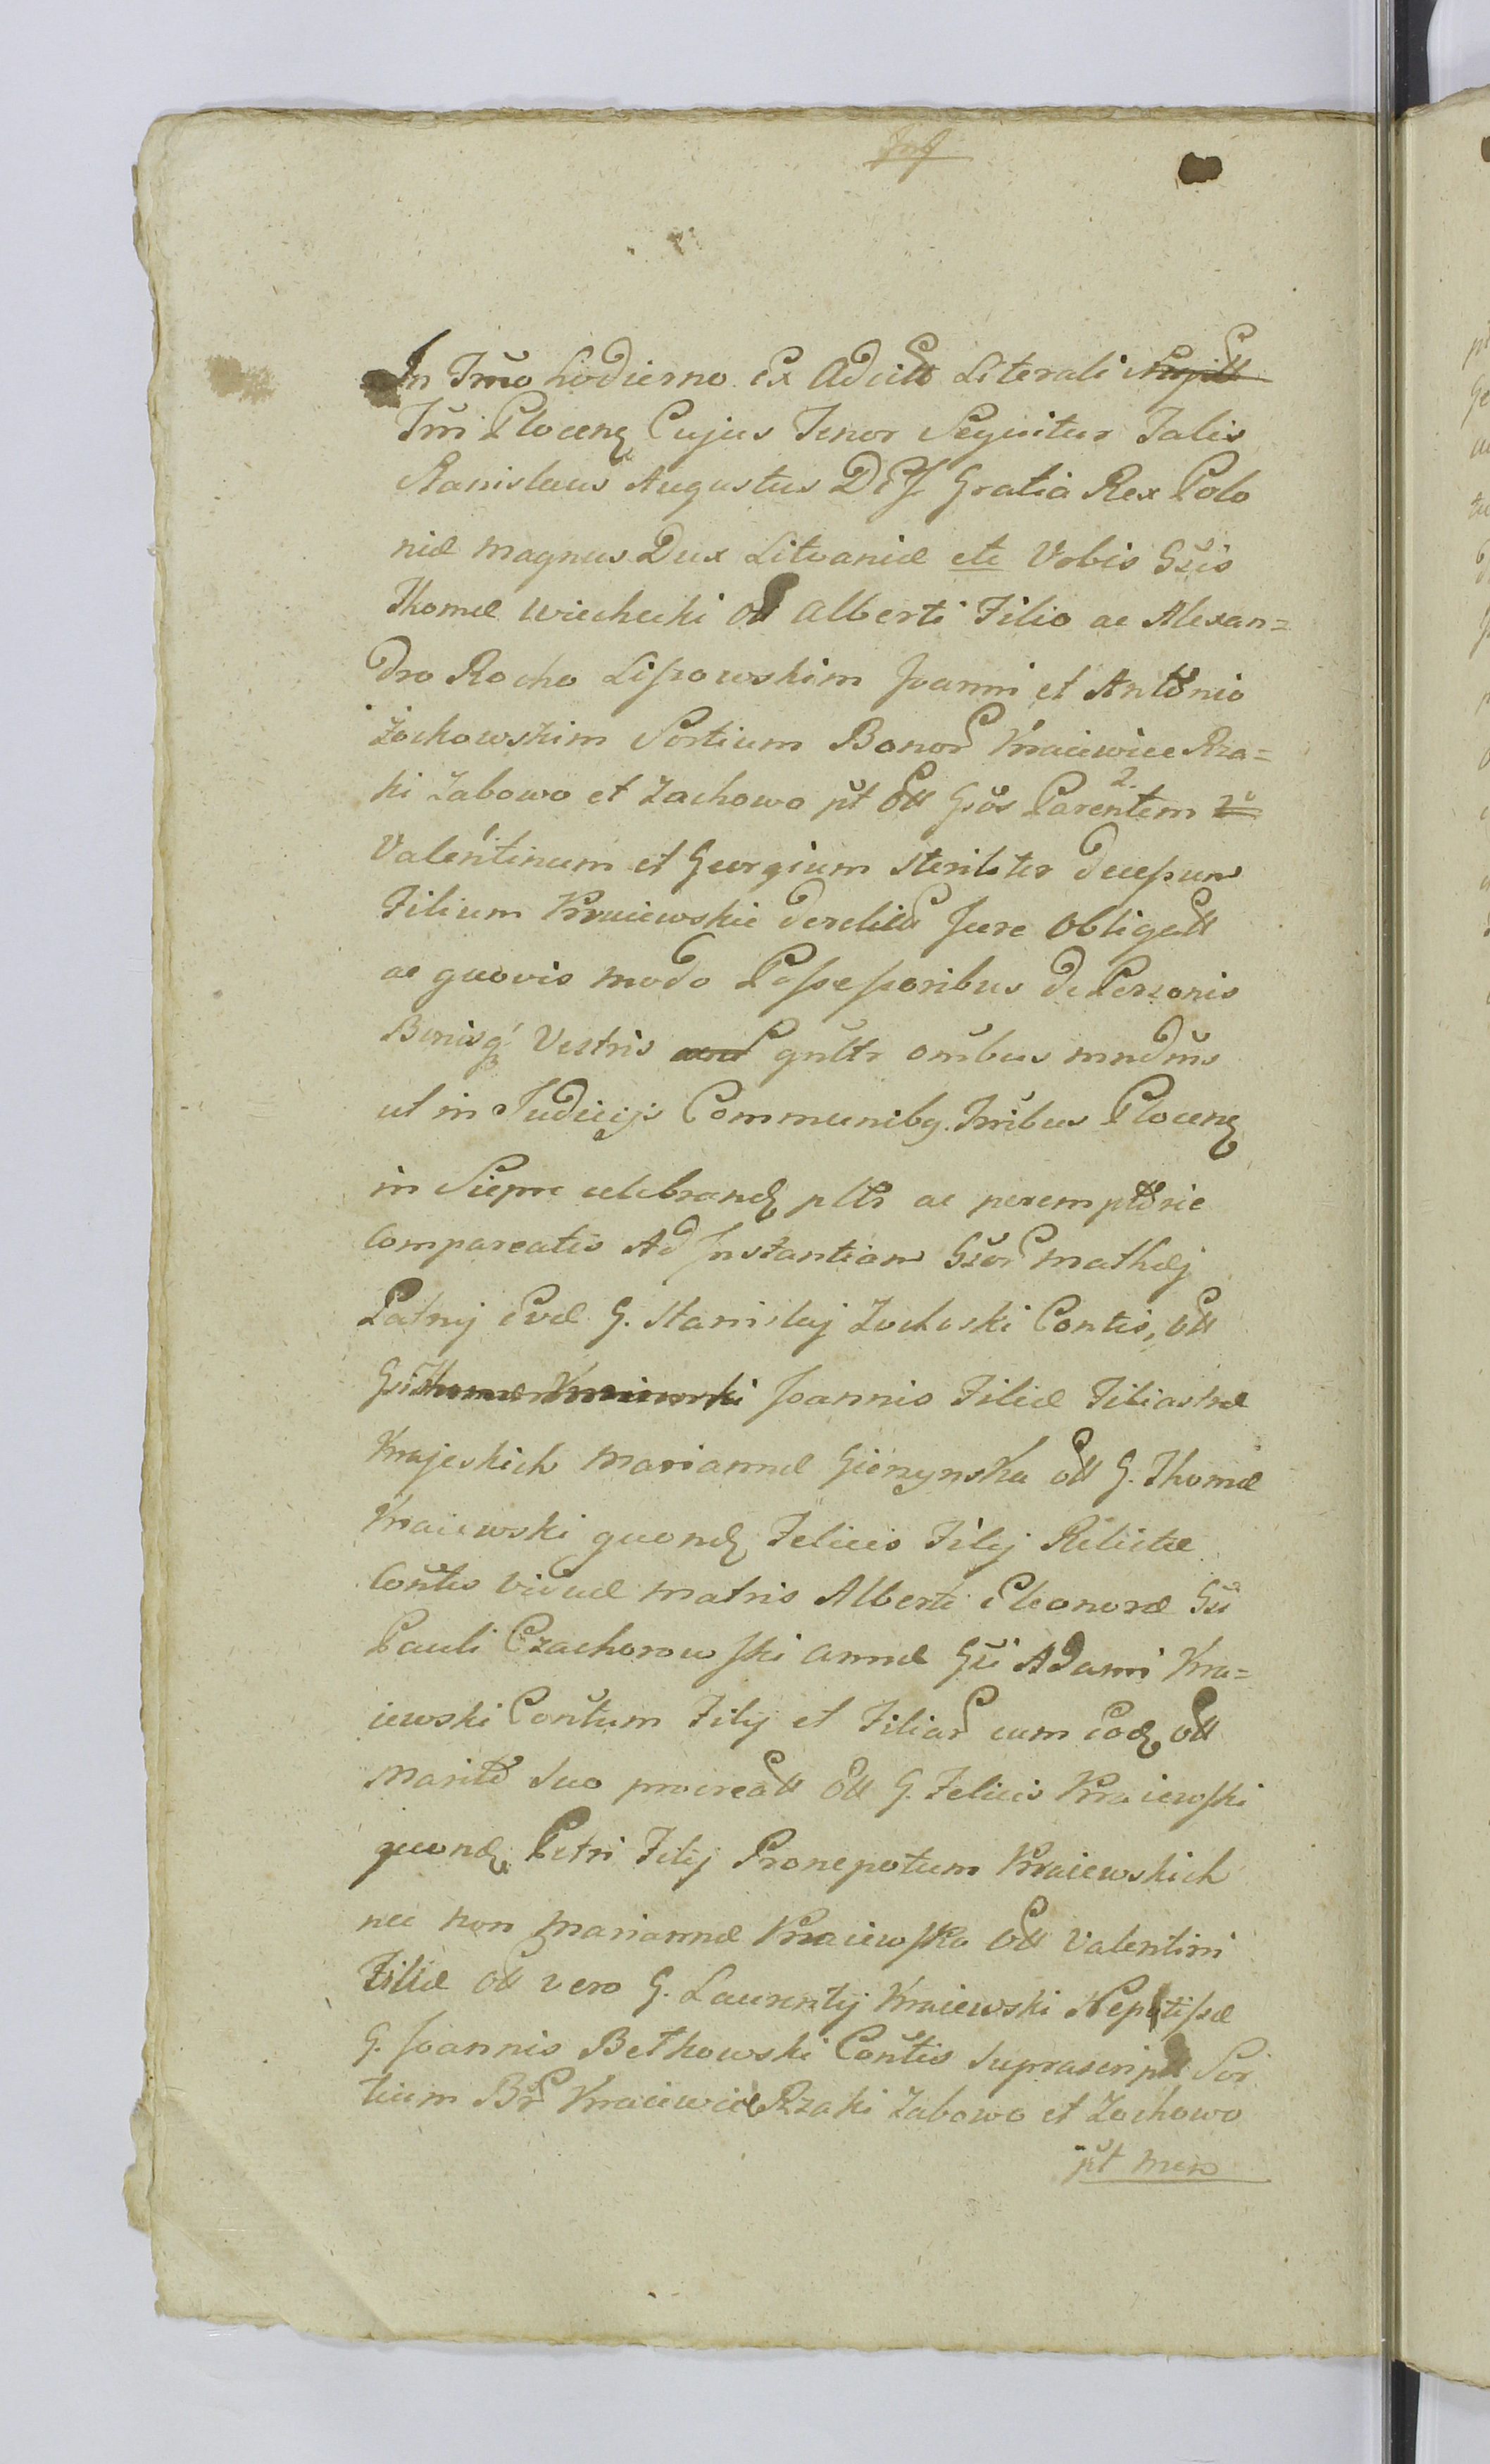 In Tm̃o hodierno Ex Adcitt Literali
Tm̃i Plocen Cujus Tenor Sequitur Talis
Stanislaus Augustus DEI Gratia Rex Polo
niæ Magnus Dux Litvaniæ etc Vobis Gsis
Thomæ Wiechecki olt Alberti Filio ac Alexan=
dro Rocho Lissowskim Joanni et Antonio
Zochowskim Sortium Bonor Kraiewice Rza=
ki Zabowo et Zachowo pt ott Gsos Parentem 2.
Valentinum et Georgium Steriliter decessum
Filium Kraiewskie derelict Jure Obligatt
ac quovis modo Possessoribus de Personis
Bonisq Vestris gnltr omibus mndms
ut in Judicijs Communibq. Tm̃ibus Plocen
in Sierpc celebrand pltr ac peremptorie
Compareatis Ad Instantiam Gsor Mathej
Patruj Evæ G. Stanislaj Zochoski Contis, ott
Joannis Filiæ Filiastræ
Krajeskich Mariannæ ott G. Thomæ
Kraiewski quond Felicis Filij Relictæ
Coñtis viduæ Matris Alberti Eleonoræ Gsi
Pauli Czachorowski Annæ Gsi Adami Kra=
iewski Coñtum Filij et Filiar cum eod ott
Marito Suo procreatt ott G. Felicis Kraiewski
quond Petri Filij Pronepotum Kraiewskich
nec non Mariannæ Kraiewska ott Valentini
Filiæ ott vero G. Laurentij Kraiewski Nepotissæ
G. Joannis Betkowski Coñtis Suprascriptt Sor
tium Br Kraiewice Rzaki Zabowo et Zochowo
pt men